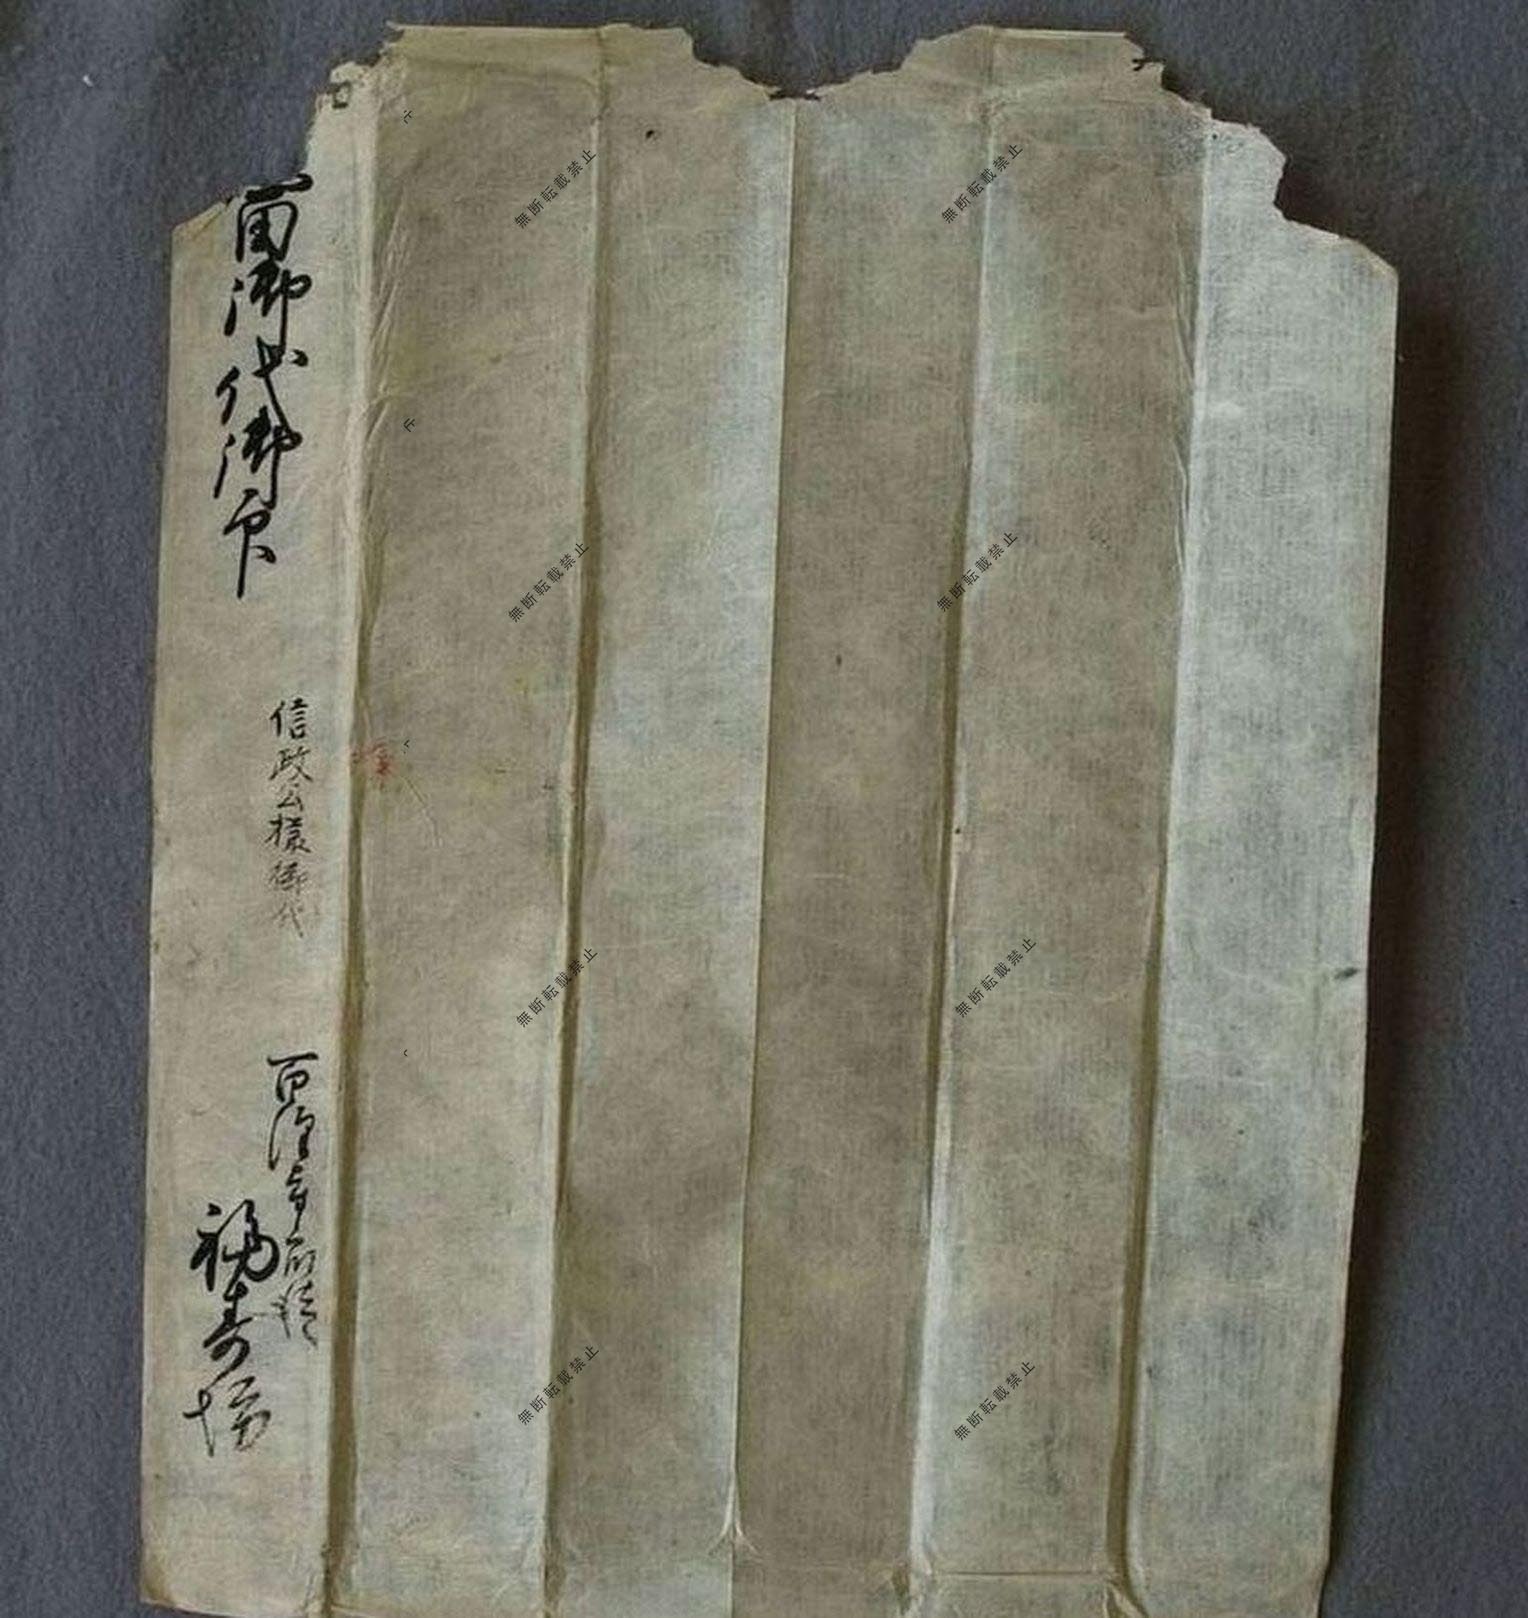 御代御
信政公様御代
百澤寺
福寿坊
無断転載禁止
無断転載禁止
無断転載禁止
無断転載禁止
無断転載禁止
無断転載禁止
無断転載禁止
無断転載禁止